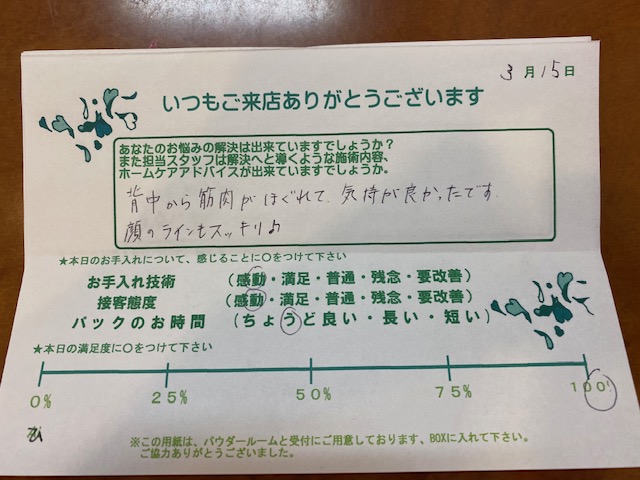 3月15日
いつもご来店ありがとうございます
あなたのお悩みの解決は出来ていますでしょうか？
また担当スタッフは解決へと導くような施術内容、
ホームケアアドバイスが出来ていますでしょうか。
背中から筋肉がほぐれて、気持が良かったです。
顔のラインもスッキリ♪
★本日のお手入れについて、感じることに○をつけて下さい
お手入れ技術　（感動・満足・普通・残念・要改善）
接客態度　（感動・満足・普通・残念・要改善）
パックのお時間　（ちょうど良い・長い・短い）
★本日の満足度に○をつけて下さい
0%　25%　50%　75%　100%
※この用紙は、パウダールームと受付にご用意しております、BOXに入れて下さい。
ご協力ありがとうございました。